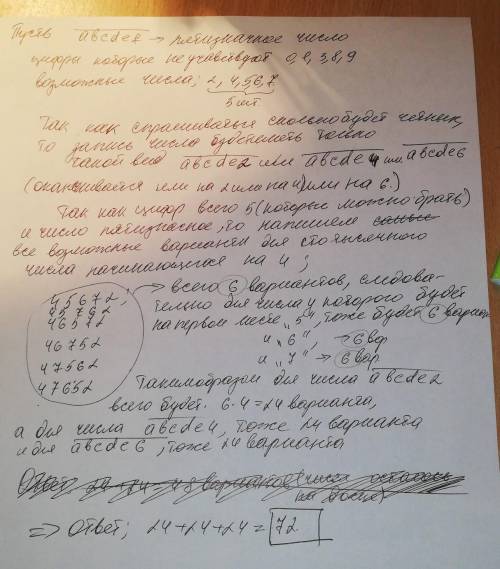 Пусть abcde2 → пятизначное число
цифры которые не участвуют 0,1,3,8,9
возможные числа; 2, 4,5,6,7
5 шт
Так как спрашивается сколько будет четных,
то запись числа будет иметь только
такой вид abcde2 или abcde4 или abcde6
(оканчивается или на 2 или на 4 или на 6.)
Так как цифр всего 5 (которые можно брать)
и число пятизначное, то напишем
все возможные варианты для стотысячного
числа начинающегося на 4;
45672;
45762
46572
46752
47562
47652
→ всего 6 вариантов, следова-
тельно для числа у которого будет
на первом месте „5", тоже будет 6 вариан
и „6", → 6 вар
и „7" → 6 вар
Таким образом для числа abcde2
всего будет. 6·4=24 варианта,
а для числа abcde4, тоже 24 варианта
и для abcde6, тоже 24 варианта
⇒ ответ; 24+24+24= 72